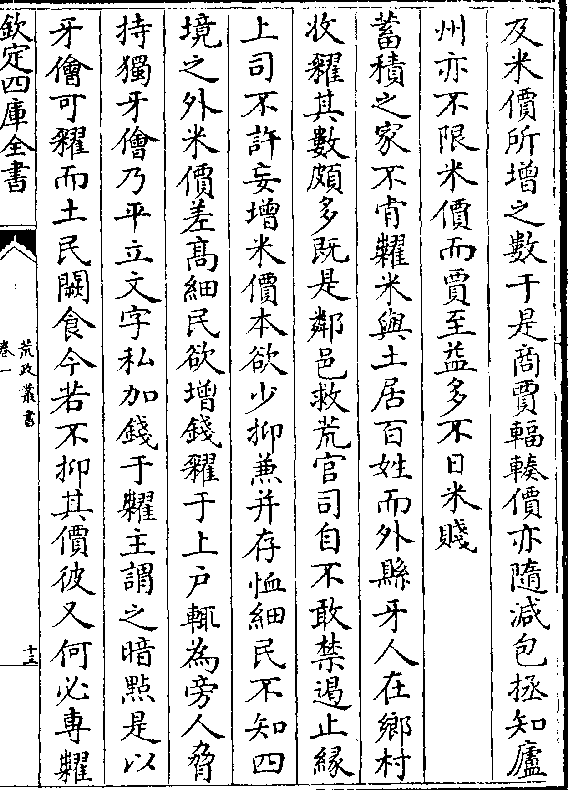 及米價所增之數于是商賈輻輳價亦隨減包拯知廬
州亦不限米價而賈至益多不日米賤
蓄積之家不肯糶米與土居百姓而外縣牙人在鄉村
收糴其數頗多既是鄰邑救荒官司自不敢禁遏止縁
上司不許妄增米價本欲少抑兼并存恤細民不知四
境之外米價差髙細民欲增錢糴于上户輒為旁人脅
持獨牙儈乃平立文字私加錢于糶主謂之暗㸃是以
牙儈可糴而土民闕食今若不抑其價彼又何必専糶
欽定四庫全書
荒政叢書
卷一
十三